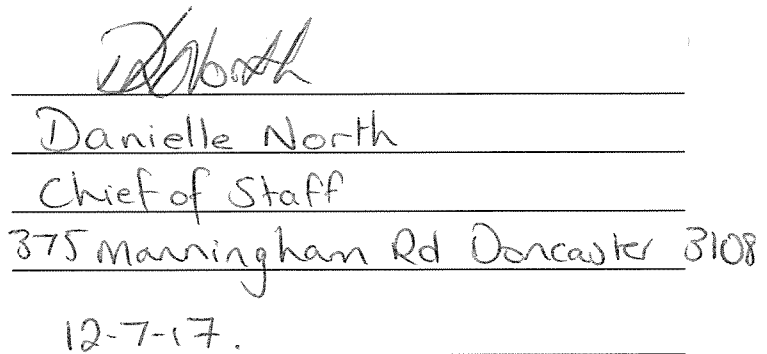 DNorth
Danielle North
Chief of Staff
375 Manningham Rd Doncaster 3108
12-7-17.